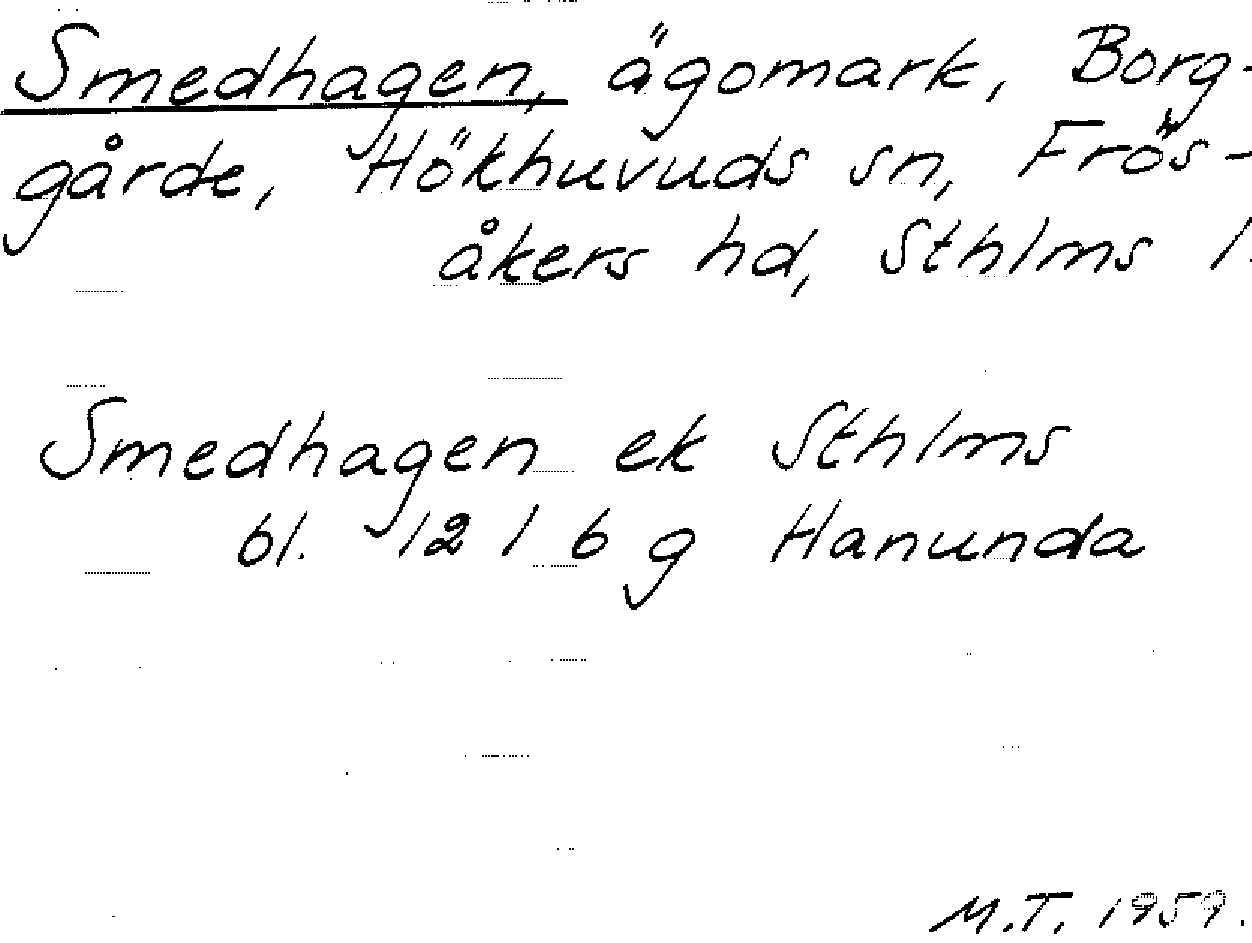 Smedhagen, ägomark, Borg-
gårde, Hökhuvuds sn, Frös-
åkers hd, Sthlms l.
Smedhagen ek Sthlms
bl. 12 I 6 g Hanunda
M.T. 1959.